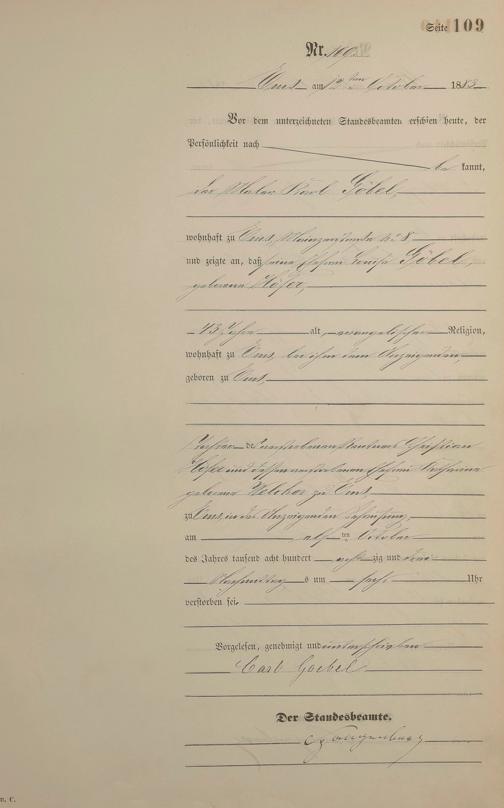 Seite 109
Nr. 109
Ems am 12ten October 1883
Vor dem unterzeichneten Standesbeamten erschien heute, der
Persönlichkeit nach
be kannt,
der Maler Karl Göbel,
wohnhaft zu Ems, Mainzerstraße No 8
und zeigte an, daß seine Ehefrau Louise Göbel,
geborene Höfer,
43 Jahre alt, evangelischer Religion,
wohnhaft zu Ems, bei ihm dem Anzeigenden,
geboren zu Ems,
Tochter des verstorbenen Christian
Höfer und dessen verstorbenen Ehefrau Catharina
geborene zu Ems,
zu Ems, in des Anzeigenden Behausung,
am elf ten October
des Jahres tausend acht hundert acht zig und drei
Nachmittag s um sechs Uhr
verstorben sei.
Vorgelesen, genehmigt und unterschrieben
Carl Goebel
Der Standesbeamte.